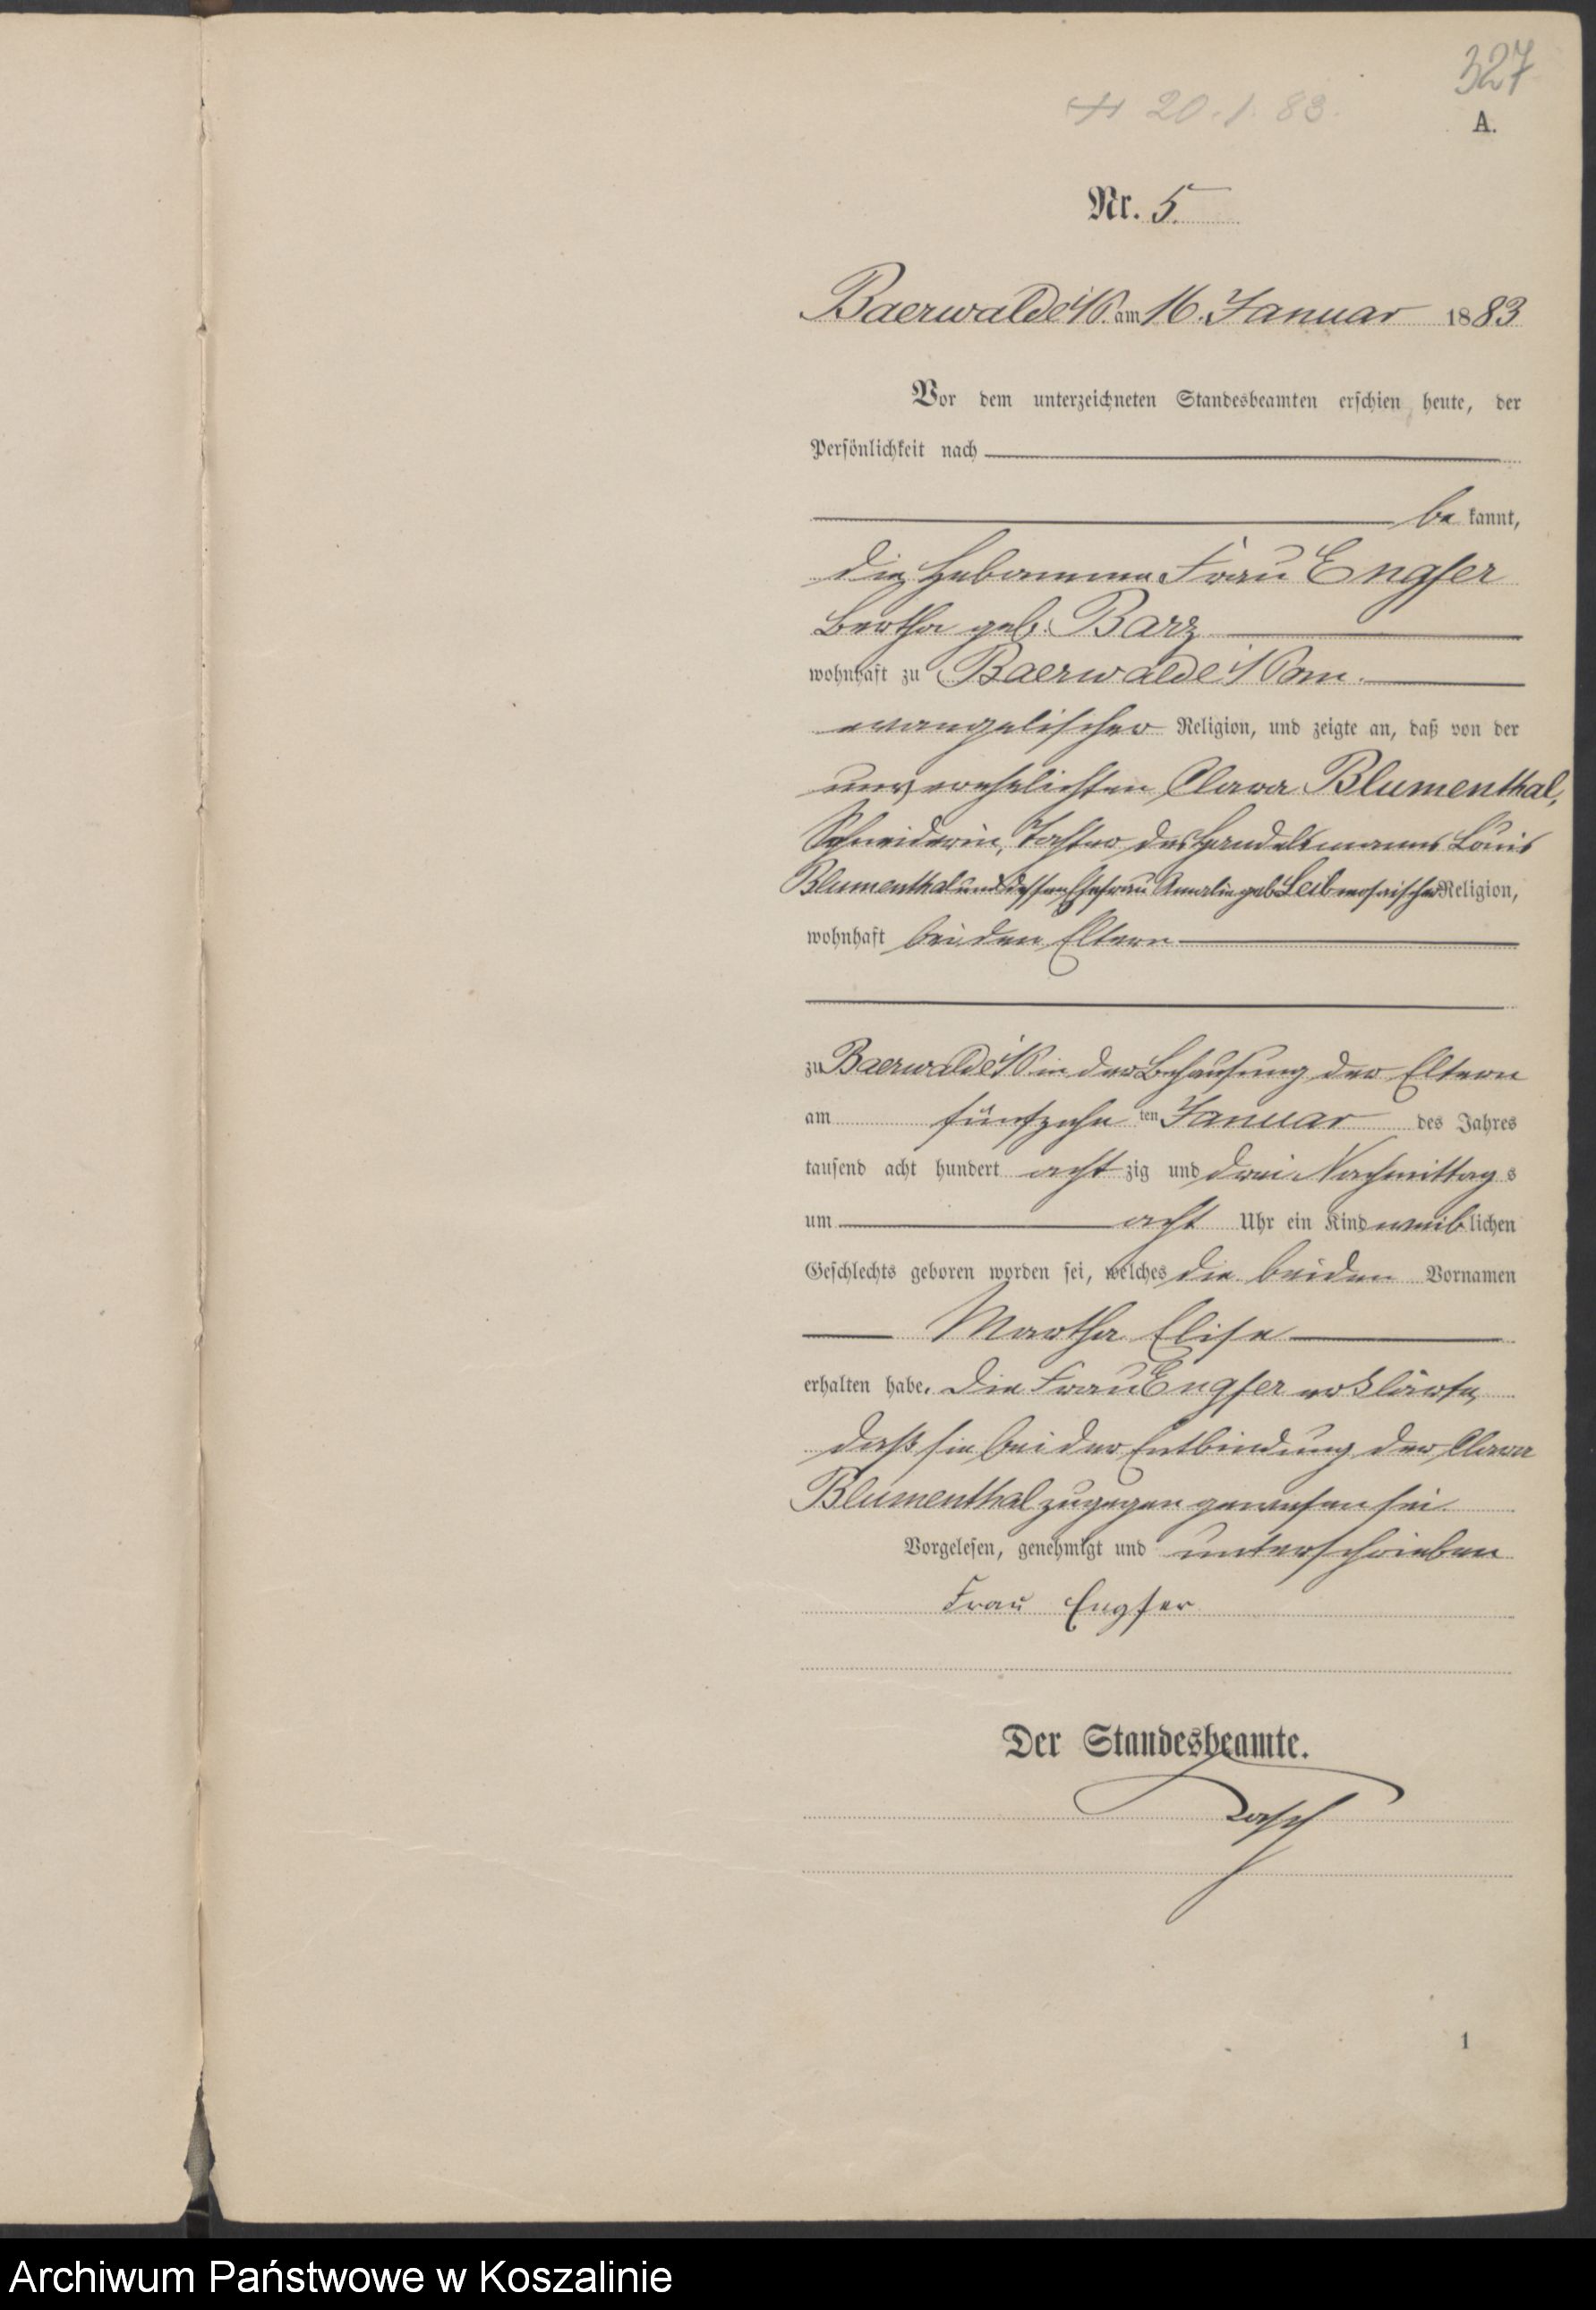 327
20. 1. 83.
A.
Nr. 5.
Baerwalde i/P. am 16. Januar 1883
Vor dem unterzeichneten Standesbeamten erschien heute, der
Persönlichkeit nach
be kannt,
die Hebamme Frau Engfer
Bertha geb. Barz
wohnhaft zu Baerwalde i/Pom.
evangelischer Religion, und zeigte an, daß von der
unverehelichten Clara Blumenthal,
Schneiderin, Tochter des Handelsmanns Louis
Blumenthal und dessen Ehefrau Amalie geb. Leib mosaischer Religion,
wohnhaft bei den Eltern
zu Baerwalde i/P in der Behausung der Eltern
am fünfzehn ten Januar des Jahres
tausend acht hundert acht zig und drei Nachmittag s
um acht Uhr ein Kind weib lichen
Geschlechts geboren worden sei, welches die beiden Vornamen
Martha Elise
erhalten habe. Die Frau Engfer erklärte,
daß sie bei der Entbindung der Clara
Blumenthal zugegen gewesen sei.
Vorgelesen, genehmigt und unterschrieben
Frau Engfer
Der Standesbeamte.
1
Archiwum Państwowe w Koszalinie